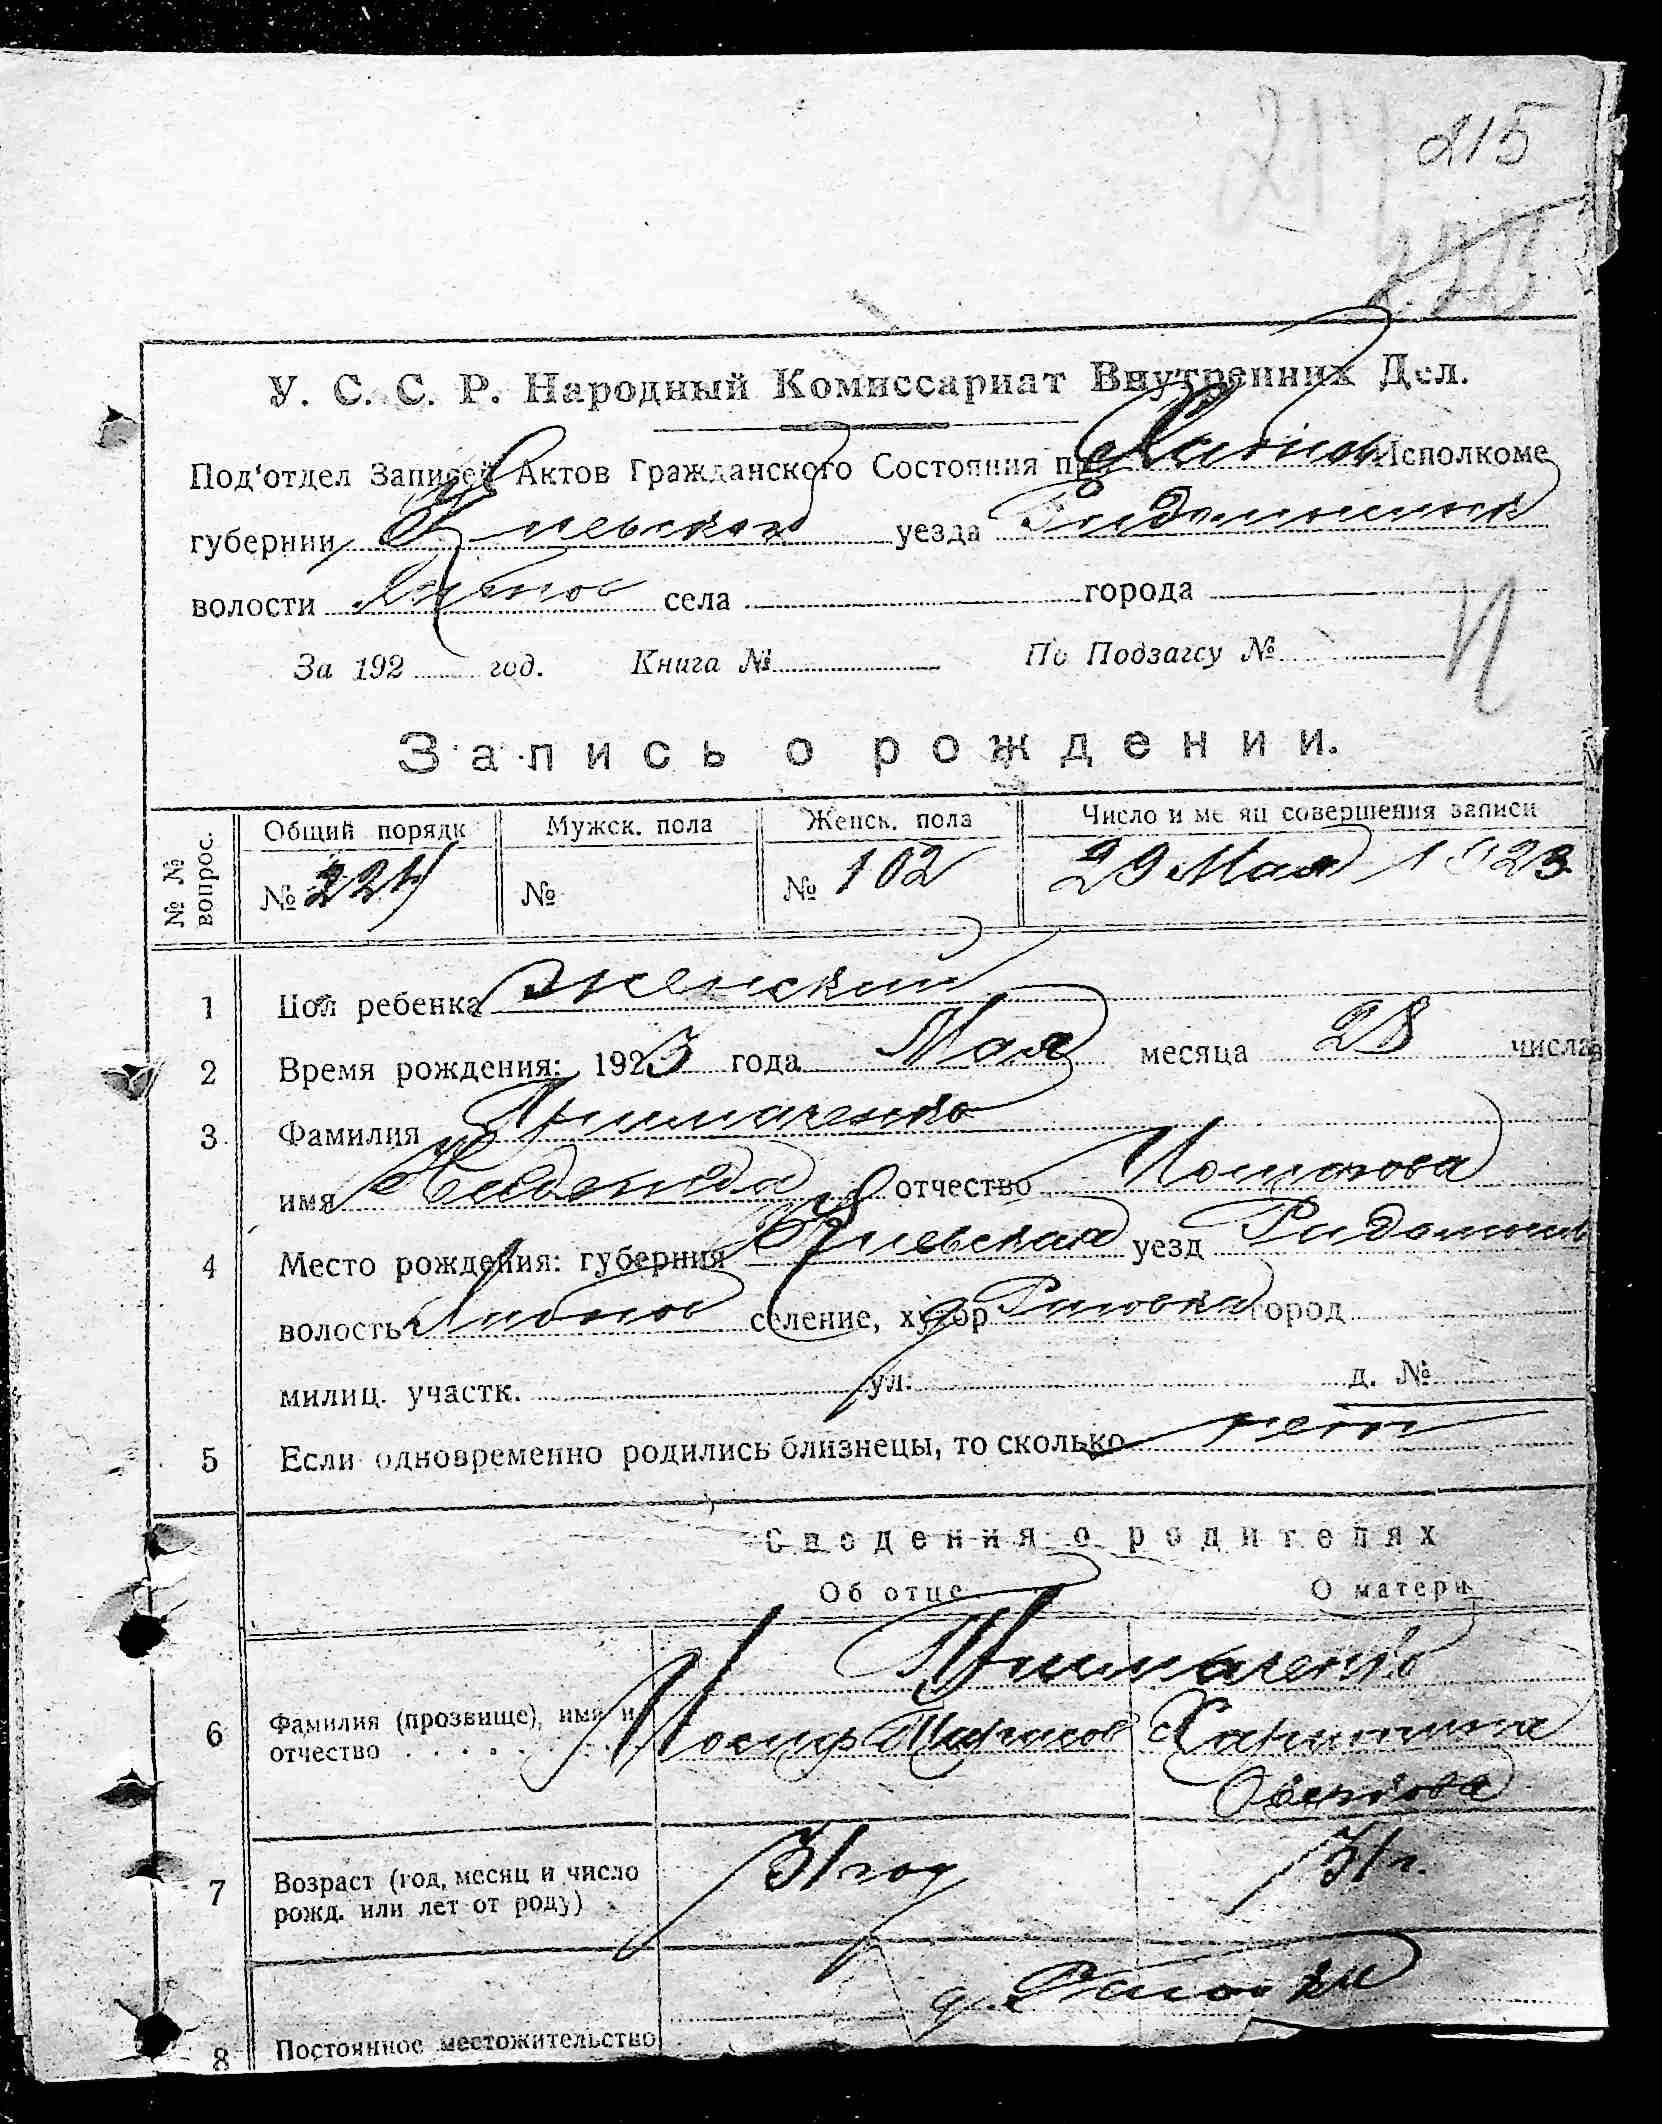 214 215
У. С. С. Р. Народный Комиссариат Внутренних Дел.
Под'отдел Записей Актов Гражданского Состояния при Исполкоме
губернии Киевской уезда Радомышльск
волости села города
За 192 год. Книга № По Подзагсу №
Запись о рождении.
№№ вопрос. Общий порядк Мужск. пола Женск. пола Число и месяц совершения записи
№ 224 № № 102 29 Мая 1923
1 Пол ребенка женский
2 Время рождения: 1923 года Мая месяца 28 числа
3 Фамилия Примаченко
имя Надежда отчество Иосифова
4 Место рождения: губерния Киевская уезд Радомысль
волость селение, хутор город
милиц. участк. ул. д. №
5 Если одновременно родились близнецы, то сколько нет
Сведения о родителях
Об отце О матери
Примаченко
6 Фамилия (прозвище), имя и отчество . . . . . . Иосиф Тарасов Харитина
7 Возраст (год, месяц и число рожд. или лет от роду) 31 год 31 г.
8 Постоянное местожительство д.